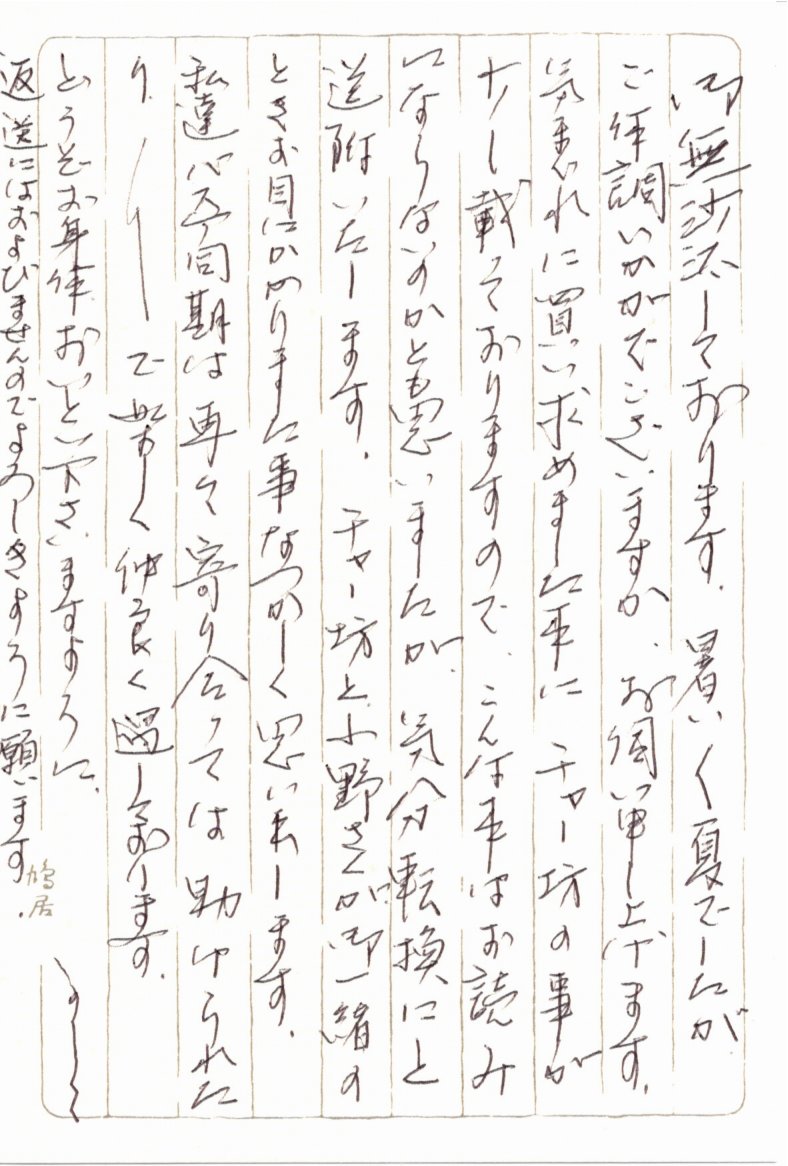 御無沙汰しております。暑い〱夏でしたが
ご体調いかがでございますか。お伺い申し上げます。
気まぐれに買い求めました本に チャー坊の事が
少し載っておりますので、こんな本はお読み
にならないのかとも思いましたが、気分転換にと
送附いたします。チャー坊と小野さんが御一緒の
ときお目にかかりました事なつかしく思い出します。
私達 同期は再々寄り合っては助けられた
り
で楽しく仲良く過しております。
どうぞお身体おいとい下さいますように。
返送にはおよびませんのでよろしきように願います。
鳩居